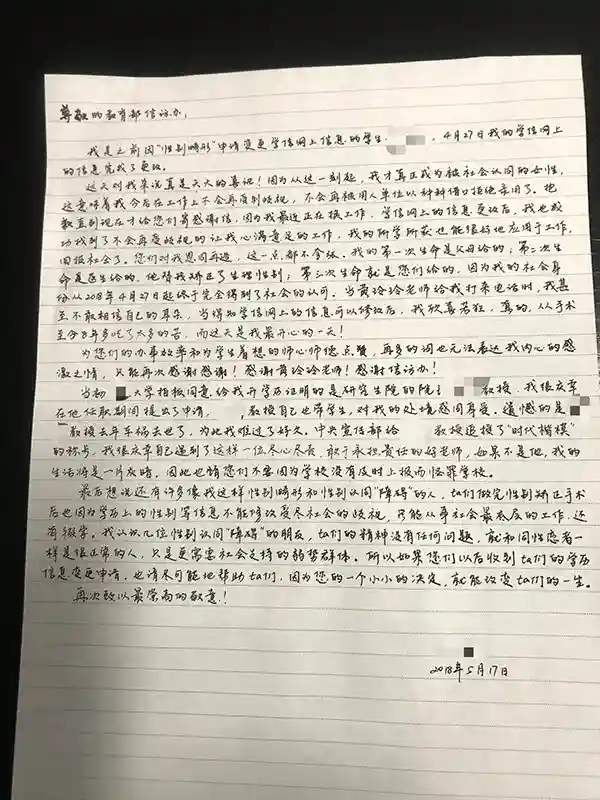 尊敬的教育部信访办,
我是之前因"性别畸形"申请变更学信网上信息的学生 ，4月27日我的学信网上
的信息完成了更改。
这天对我来说真是天大的喜讯！因为从这一刻起，我才真正成为被社会认同的女性，
这意味着我今后在工作上不会再受到歧视，不会再被用人单位以种种借口拒绝录用了。抱
歉直到现在才给您们寄感谢信，因为我最近正在换工作，学信网上的信息更改后，我也成
功找到了不会再受歧视的让我心满意足的工作，我的所学所获也能很好地应用于工作，
回报社会了。您们对我恩同再造，这一点都不夸张。我的第一次生命是父母给的；第二次生
命是医生给的，他帮我矫正了生理性别；第三次生命就是您们给的，因为我的社会身
份从2018年4月27日起终于完全得到了社会的认可。当黄玲玲老师给我打来电话时，我甚
至不敢相信自己的耳朵，当得知学信网上的信息可以修改后，我欣喜若狂，真的，从手术
至今8年多吃了太多的苦，而这天是我最开心的一天！
为您们的办事效率和为学生着想的师心师德点赞，再多的词也无法表达我内心的感
激之情，只能再次感谢感谢！感谢黄玲玲老师！感谢信访办！
当初 大学拍板同意给我开学历证明的是研究生院的院 教授，我很庆幸
在他任职期间提出了申请， 教授自己也带学生，对我的处境感同身受。遗憾的是
教授去年车祸去世了，为此我难过了好久，中央宣传部给 教授追授了"时代楷模"
的称号，我很庆幸自己遇到了这样一位尽心尽责，敢于承担责任的好老师，如果不是他，我的
生活将是一片灰暗。因此也请您们不要因为学校没有及时上报而怪罪学校。
最后想说还有许多像我这样性别畸形和性别认同"障碍"的人，ta们做完性别矫正手术
后也因为学历上的性别等信息不能修改受尽社会的歧视，只能从事社会最底层的工作，还
有辍学。我认识几位性别认同"障碍"的朋友，ta们的精神没有任何问题，就和同性恋者一
样是很正常的人，只是更需要社会支持的弱势群体。所以如果您们以后收到ta们的学历
信息变更申请，也请尽可能地帮助ta们，因为您的一个小小的决定，就能改变ta们的一生。
再次致以最崇高的敬意！
2018年5月17日